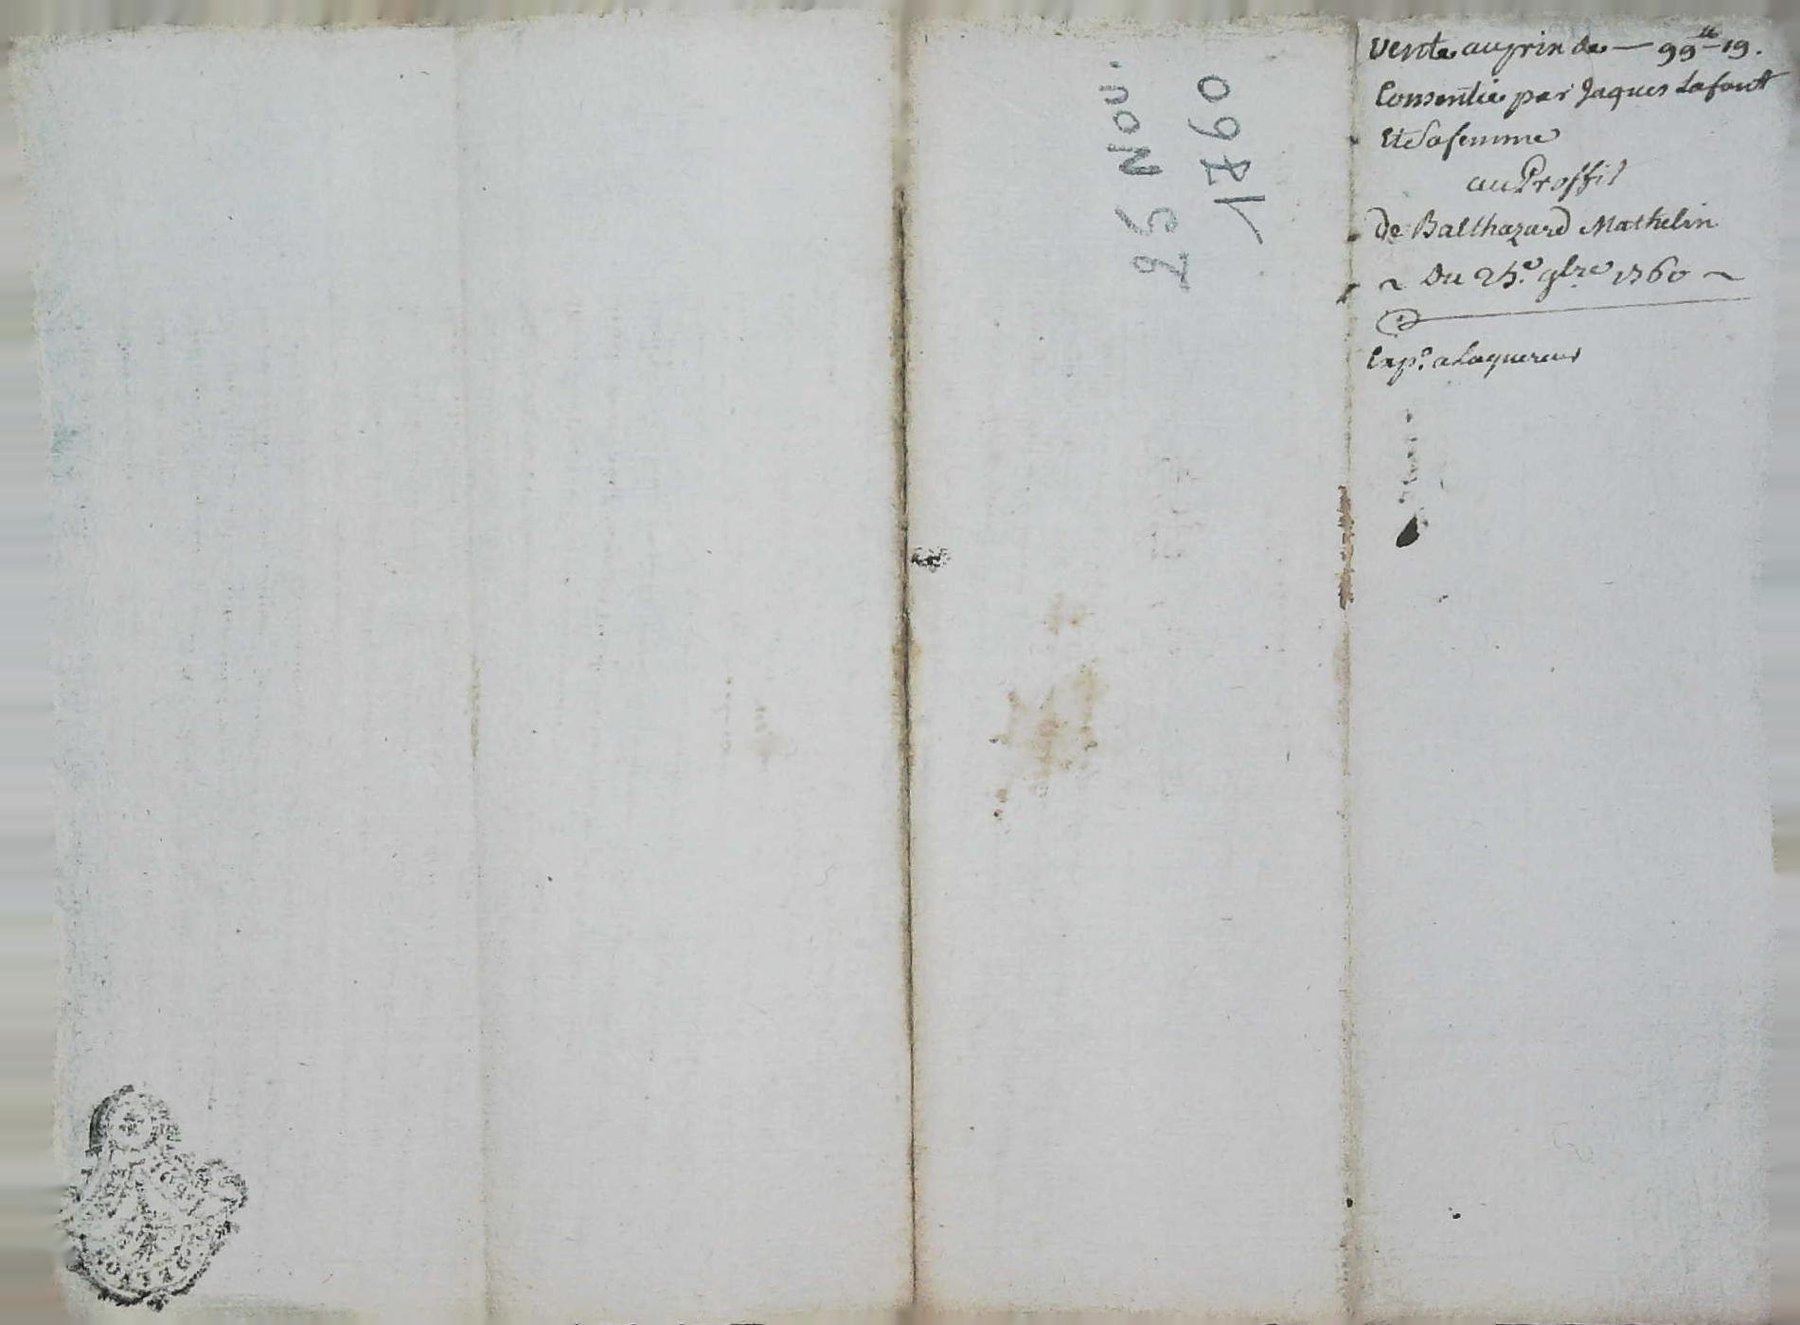 25 Nov.
1760
Vente au prix de — 99ᵗᵗ—19.
Consentie par Jaques Lafont
Et Sa femme
au Proffit
De Balthazard Mathelin
~ Du 25.e 9bre 1760 ~
Exp.° a Laquereur